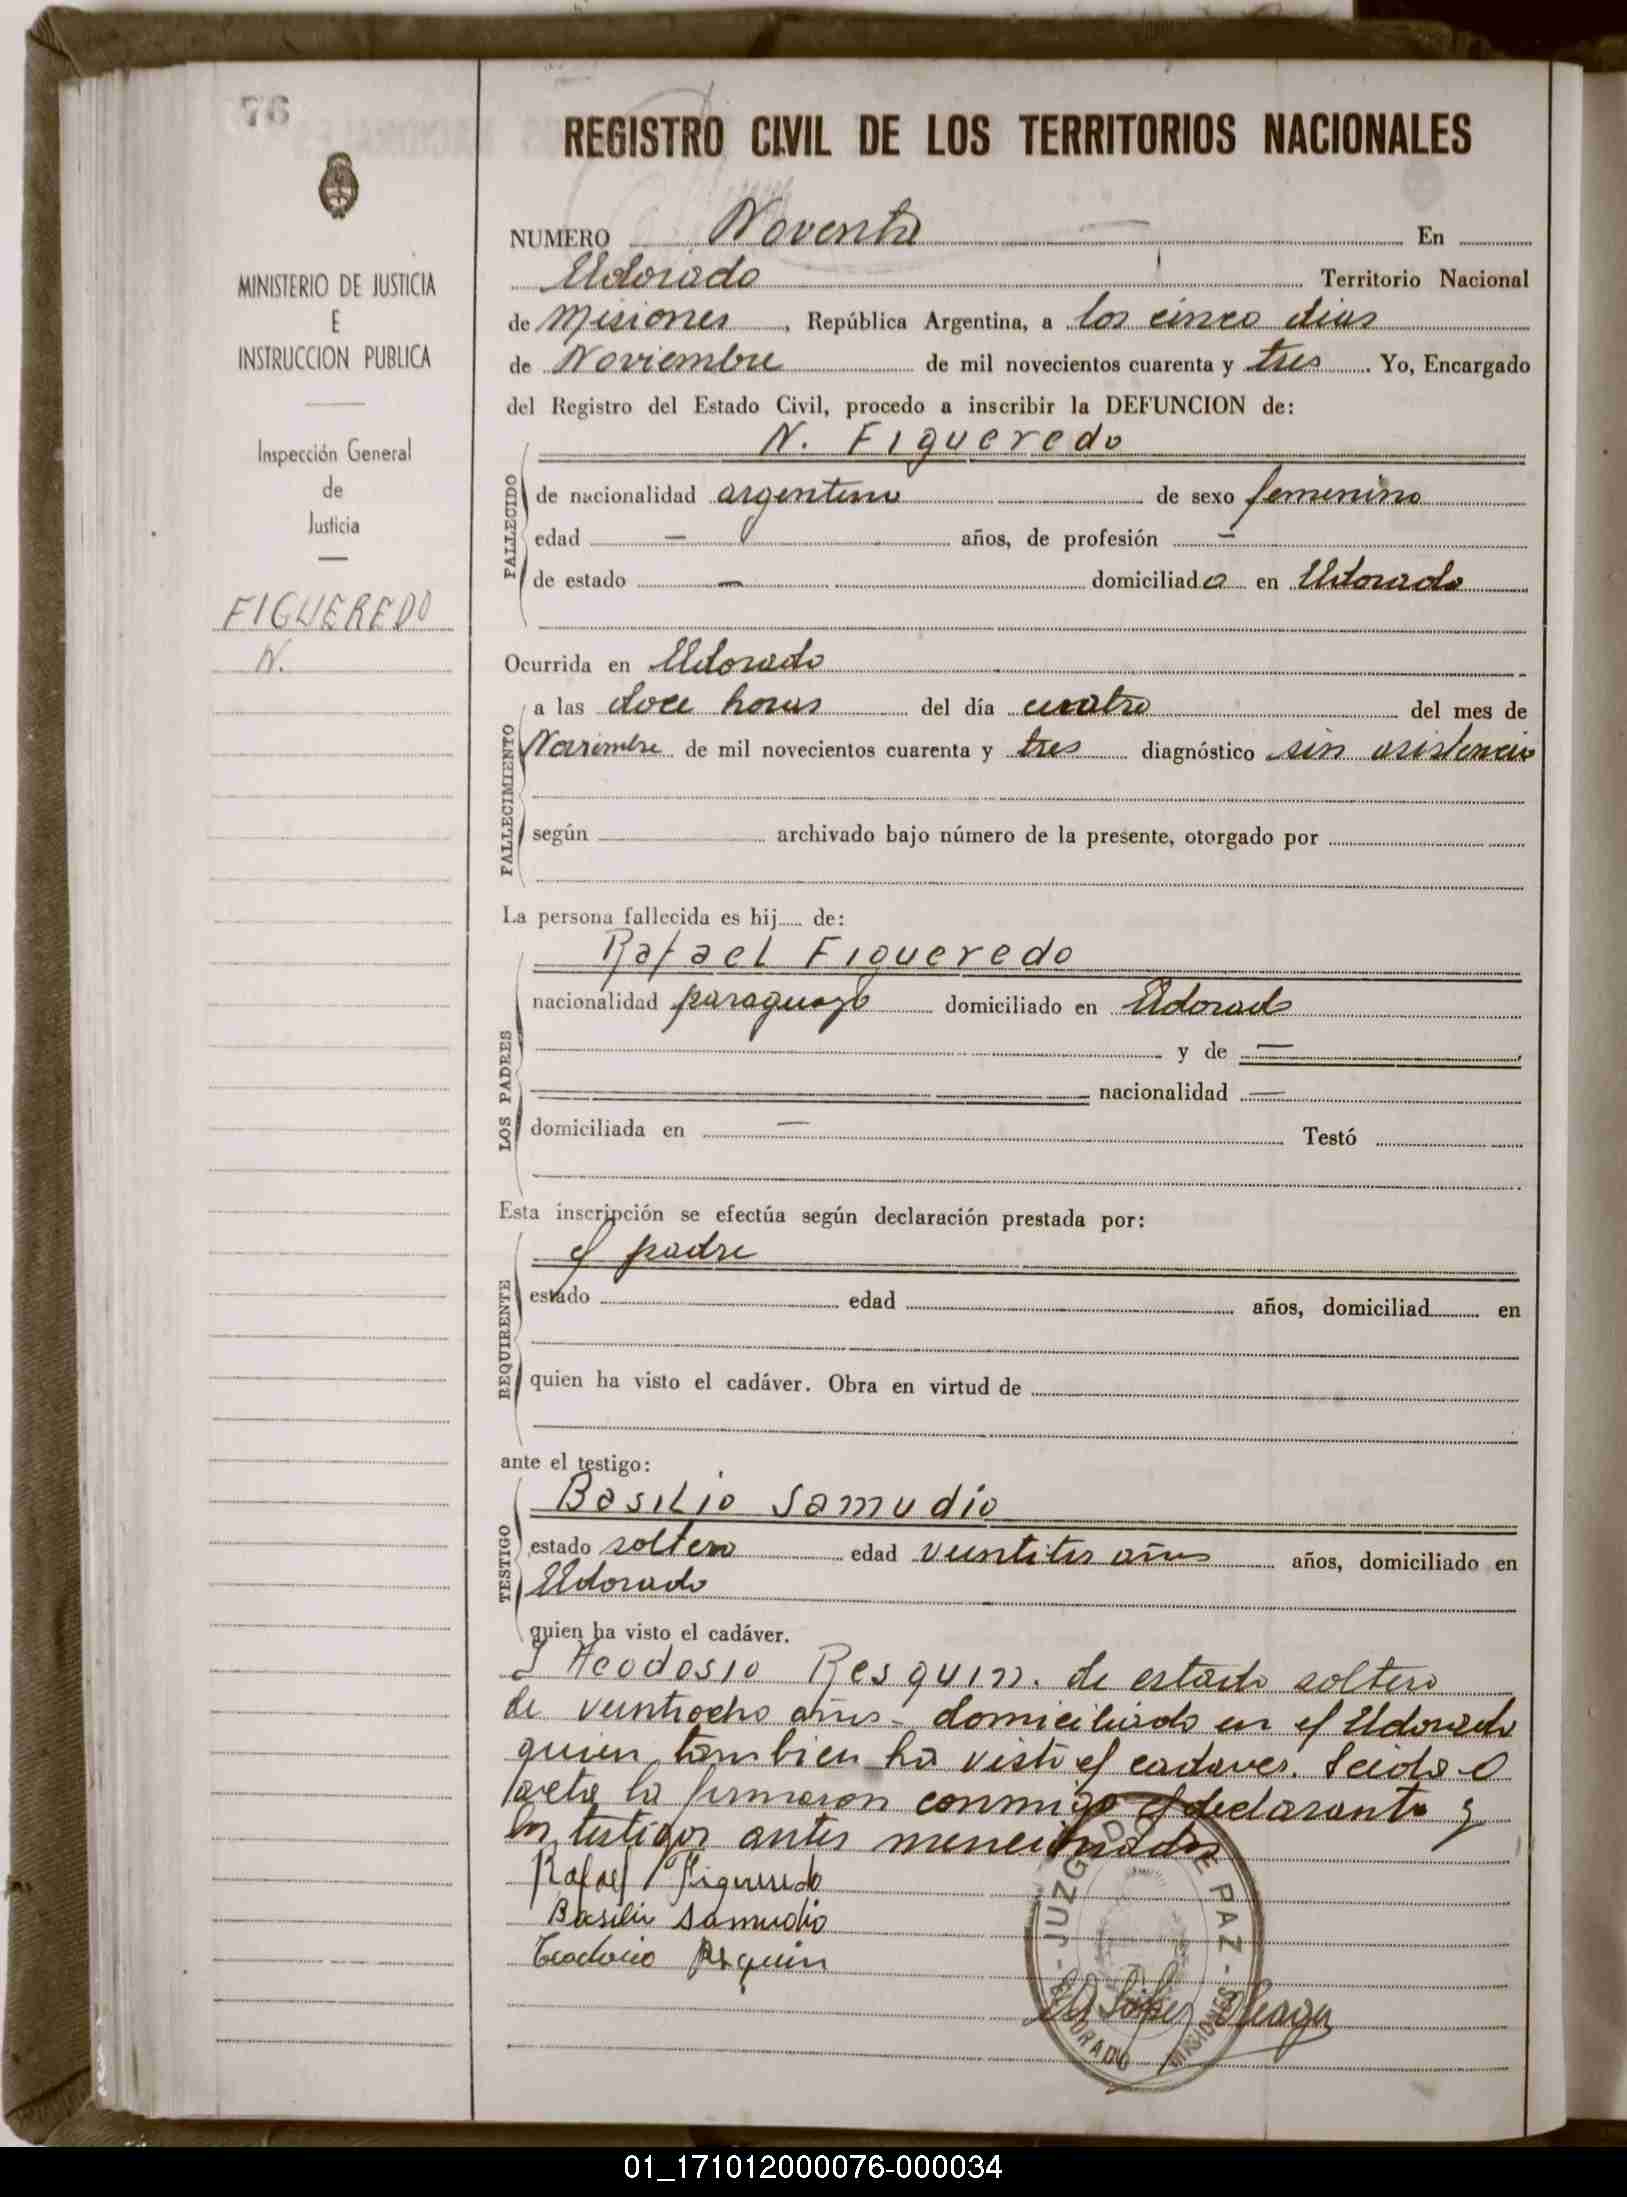 76
MINISTERIO DE JUSTICIA
E
INSTRUCCION PUBLICA
Inspección General
de
Justicia
FIGUEREDO
N.
REGISTRO CIVIL DE LOS TERRITORIOS NACIONALES
NUMERO Noventa En
Eldorado Territorio Nacional
de Misiones, República Argentina, a los cinco dias
de Noviembre de mil novecientos cuarenta y tres. Yo, Encargado
del Registro del Estado Civil, procedo a inscribir la DEFUNCION de:
N. Figueredo
FALLECIDO
de nacionalidad argentina de sexo femenino
edad — años, de profesión —
de estado — domiciliada en Eldorado
Ocurrida en Eldorado
FALLECIMIENTO
a las doce horas del día cuatro del mes de
Noviembre de mil novecientos cuarenta y tres diagnóstico sin asistencia
según archivado bajo número de la presente, otorgado por
La persona fallecida es hij de:
Rafael Figueredo
LOS PADRES
nacionalidad paraguayo domiciliado en Eldorado
y de —
nacionalidad —
domiciliada en — Testó
Esta inscripción se efectúa según declaración prestada por:
el padre
REQUIRENTE
estado edad años, domiciliad en
quien ha visto el cadáver. Obra en virtud de
ante el testigo:
Basilio Samudio
TESTIGO
estado soltero edad veintitres años años, domiciliado en
Eldorado
quien ha visto el cadáver.
Resquin. de estado soltero
de veintiocho años - domiciliado en el Eldorado
quien tambien ha visto el cadaver. Leida el
acta la firmaron conmigo el declarante y
los testigos antes mencionados
Rafael Figueredo
Basilio Samudio
Teodocio Resquin
JUZGADO DE PAZ - ELDORADO MISIONES -
01_171012000076-000034